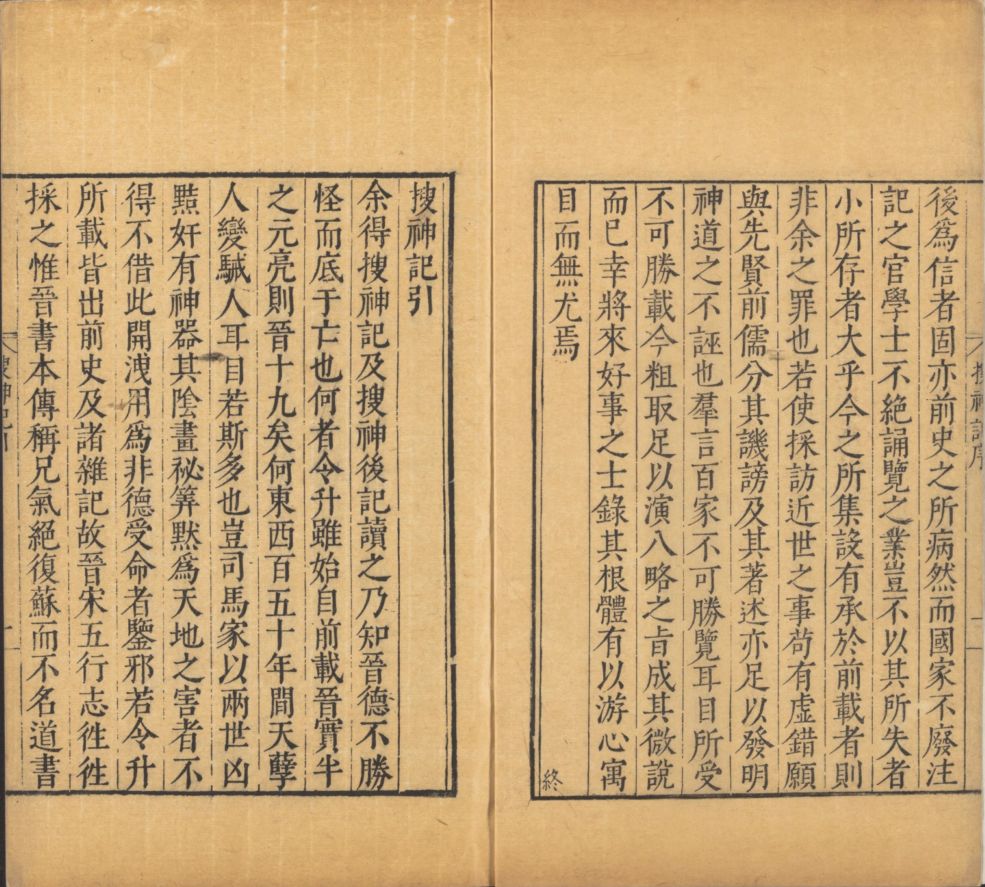 後爲信者固亦前史之所病然而國家不廢注
記之官學士不絶誦覽之業豈不以其所失者
小所存者大乎今之所集設有承於前載者則
非余之罪也若使採訪近世之事苟有虚錯願
與先賢前儒分其譏謗及其著述亦足以發明
神道之不誣也羣言百家不可勝覽耳目所受
不可勝載今粗取足以演八略之旨成其微說
而已幸將來好事之士錄其根體有以游心寓
目而無尤焉
終
搜神記引
余得搜神記及搜神後記讀之乃知晉德不勝
怪而底于亡也何者令升雖始自前載晉實半
之元亮則晉十九矣何東西百五十年間天孽
人變駴人耳目若斯多也豈司馬家以兩世凶
黠奸有神器其陰畫祕筭默爲天地之害者不
得不借此開洩用爲非德受命者鑒邪若令升
所載皆出前史及諸雜記故晉宋五行志徃徃
採之惟晉書本傳稱兄氣絕復蘇而不名道書